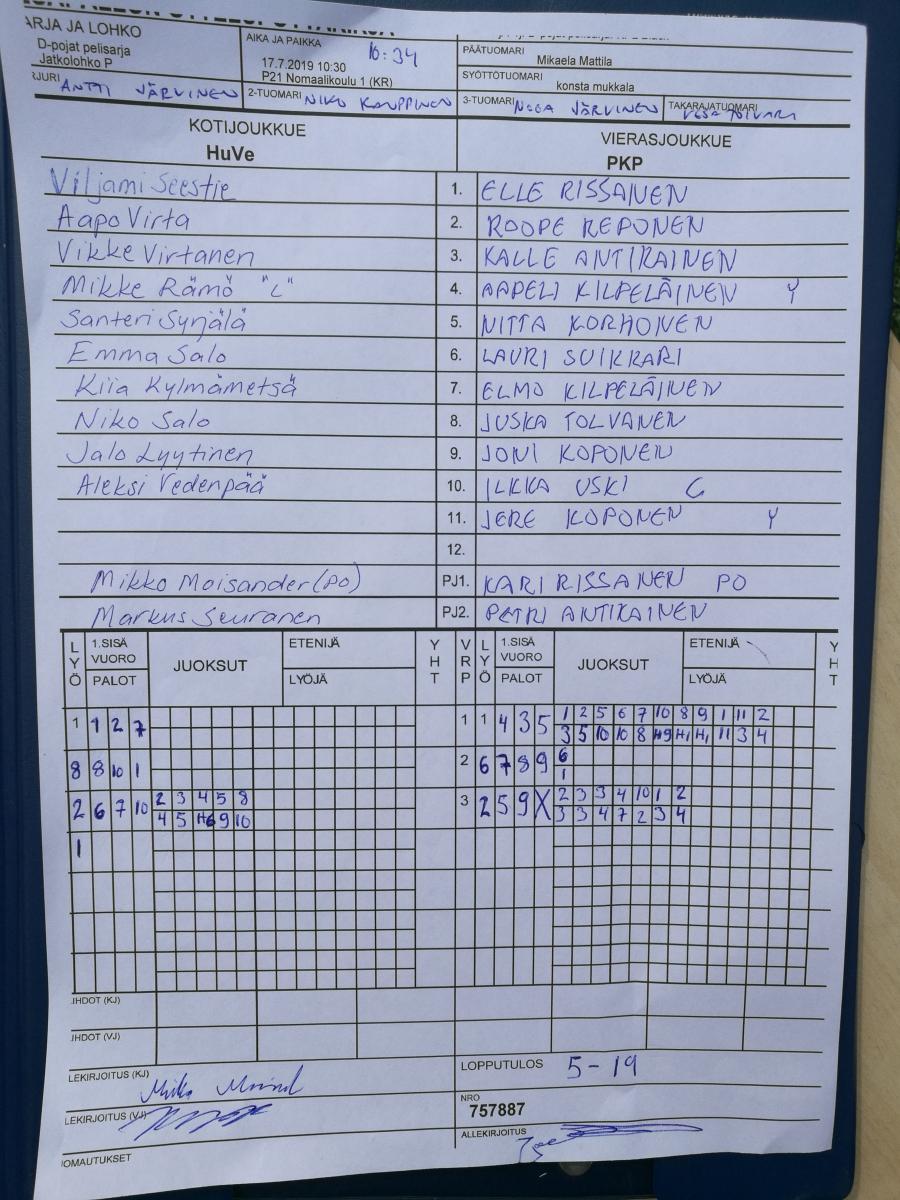 ARJA JA LOHKO
D-pojat pelisarja
Jatkolohko P
AIKA JA PAIKKA 16:34
17.7.2019 10:30
P21 Nomaalikoulu 1 (KR)
PÄÄTUOMARI
Mikaela Mattila
SYÖTTÖTUOMARI
konsta mukkala
RJURI ANTTI JÄRVINEN 2-TUOMARI NIKO KAUPPINEN 3-TUOMARI NOOA JÄRVINEN TAKARAJATUOMARI VESA TOIVARI
KOTIJOUKKUE VIERASJOUKKUE
HuVe PKP
Viljami Seestie 1. ELLE RISSANEN
Aapo Virta 2. ROOPE REPONEN
Vikke Virtanen 3. KALLE ANTIKAINEN
Mikke Rämö "C" 4. AAPELI KILPELÄINEN Y
Santeri Syrjälä 5. NITTA KORHONEN
Emma Salo 6. LAURI SUIKKARI
Kiia Kylmämetsä 7. ELMO KILPELÄINEN
Niko Salo 8. JUSKA TOLVANEN
Jalo Lyytinen 9. JONI KOPONEN
Aleksi Vedenpää 10. ILKKA USKI C
11. JERE KOPONEN Y
12.
Mikko Moisander (PO) PJ1. KARI RISSANEN PO
Markus Seuranen PJ2. PETRI ANTIKAINEN
LYÖ 1.SISÄ VUORO PALOT JUOKSUT ETENIJÄ LYÖJÄ YHT VRP LYÖ 1.SISÄ VUORO PALOT JUOKSUT ETENIJÄ LYÖJÄ YHT
1 1 2 7 1 1 4 3 5 1 2 5 6 7 10 8 9 1 11 2
3 5 10 10 8 H9 H1 H1 11 3 4
8 8 10 1 2 6 7 8 9 6
1
2 6 7 10 2 3 4 5 8 3 2 5 9 X 2 3 3 4 10 1 2
4 5 H6 9 10 3 3 4 7 2 3 4
1
JHDOT (KJ)
JHDOT (VJ)
LEKIRJOITUS (KJ) LOPPUTULOS 5-19
LEKIRJOITUS (VJ) NRO
757887
ALLEKIRJOITUS
IOMAUTUKSET